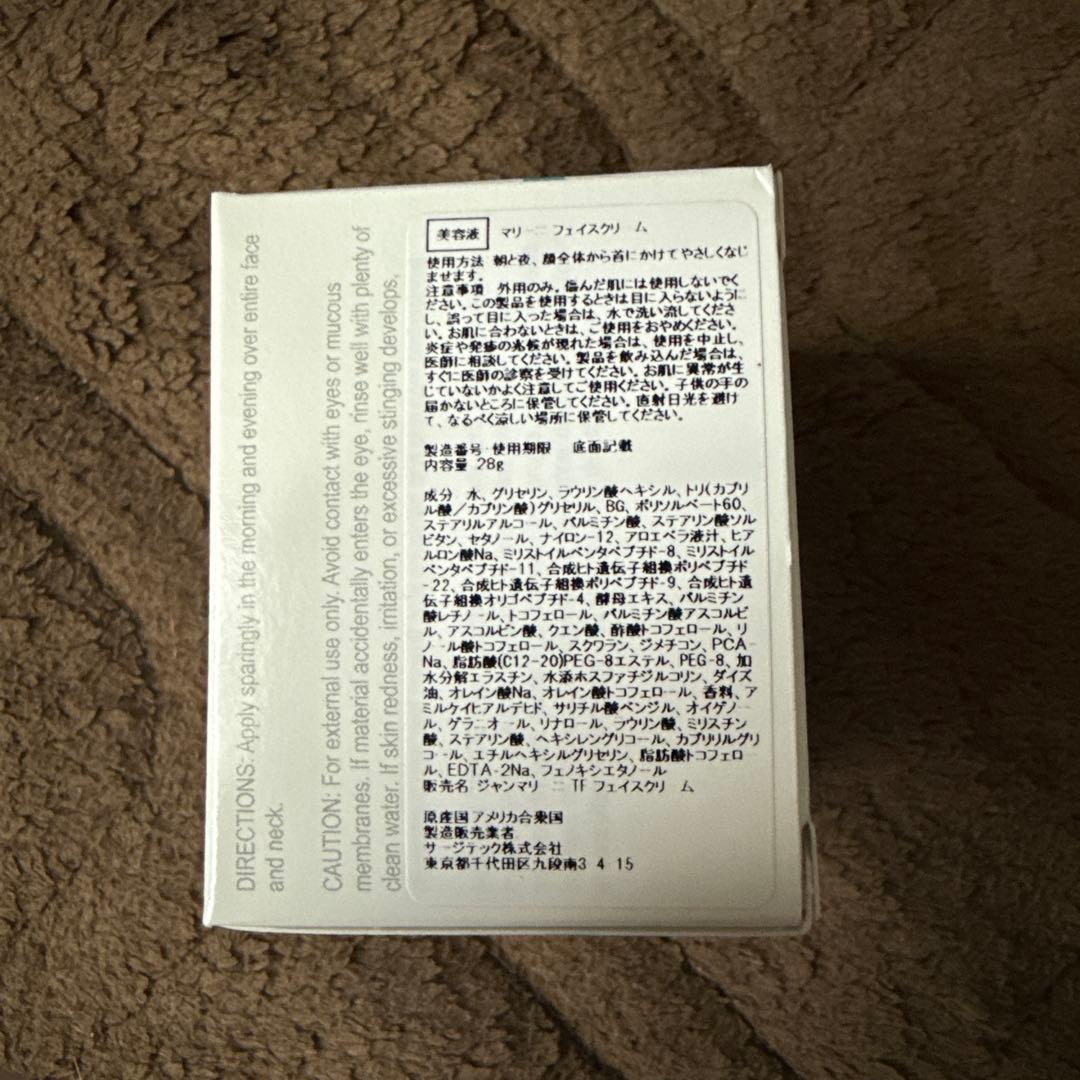 DIRECTIONS: Apply sparingly in the morning and evening over entire face
and neck.
CAUTION: For external use only. Avoid contact with eyes or mucous
membranes. If material accidentally enters the eye, rinse well with plenty of
clean water. If skin redness, irritation, or excessive stinging develops,
美容液 マリーニ フェイスクリーム
使用方法 朝と夜、顔全体から首にかけてやさしくなじ
ませます。
注意事項 外用のみ。傷んだ肌には使用しないでく
ださい。この製品を使用するときは目に入らないように
し、誤って目に入った場合は、水で洗い流してくださ
い。お肌に合わないときは、ご使用をおやめください。
炎症や発疹の兆候が現れた場合は、使用を中止し、
医師に相談してください。製品を飲み込んだ場合は、
すぐに医師の診察を受けてください。お肌に異常が生
じていないかよく注意してご使用ください。子供の手の
届かないところに保管してください。直射日光を避け
て、なるべく涼しい場所に保管してください。
製造番号・使用期限 底面記載
内容量 28g
成分 水、グリセリン、ラウリン酸ヘキシル、トリ(カプリ
ル酸/カプリン酸)グリセリル、BG、ポリソルベート60、
ステアリルアルコール、パルミチン酸、ステアリン酸ソル
ビタン、セタノール、ナイロン-12、アロエベラ液汁、ヒア
ルロン酸Na、ミリストイルペンタペプチド-8、ミリストイル
ペンタペプチド-11、合成ヒト遺伝子組換ポリペプチド
-22、合成ヒト遺伝子組換ポリペプチド-9、合成ヒト遺
伝子組換オリゴペプチド-4、酵母エキス、パルミチン
酸レチノール、トコフェロール、パルミチン酸アスコルビ
ル、アスコルビン酸、クエン酸、酢酸トコフェロール、リ
ノール酸トコフェロール、スクワラン、ジメチコン、PCA-
Na、脂肪酸(C12-20)PEG-8エステル、PEG-8、加
水分解エラスチン、水添ホスファチジルコリン、ダイズ
油、オレイン酸Na、オレイン酸トコフェロール、香料、ア
ミルケイヒアルデヒド、サリチル酸ベンジル、オイゲノー
ル、ゲラニオール、リナロール、ラウリン酸、ミリスチン
酸、ステアリン酸、ヘキシレングリコール、カプリリルグリ
コール、エチルヘキシルグリセリン、脂肪酸トコフェロー
ル、EDTA-2Na、フェノキシエタノール
販売名 ジャンマリーニ TF フェイスクリーム
原産国 アメリカ合衆国
製造販売業者
サージテック株式会社
東京都千代田区九段南3 4 15